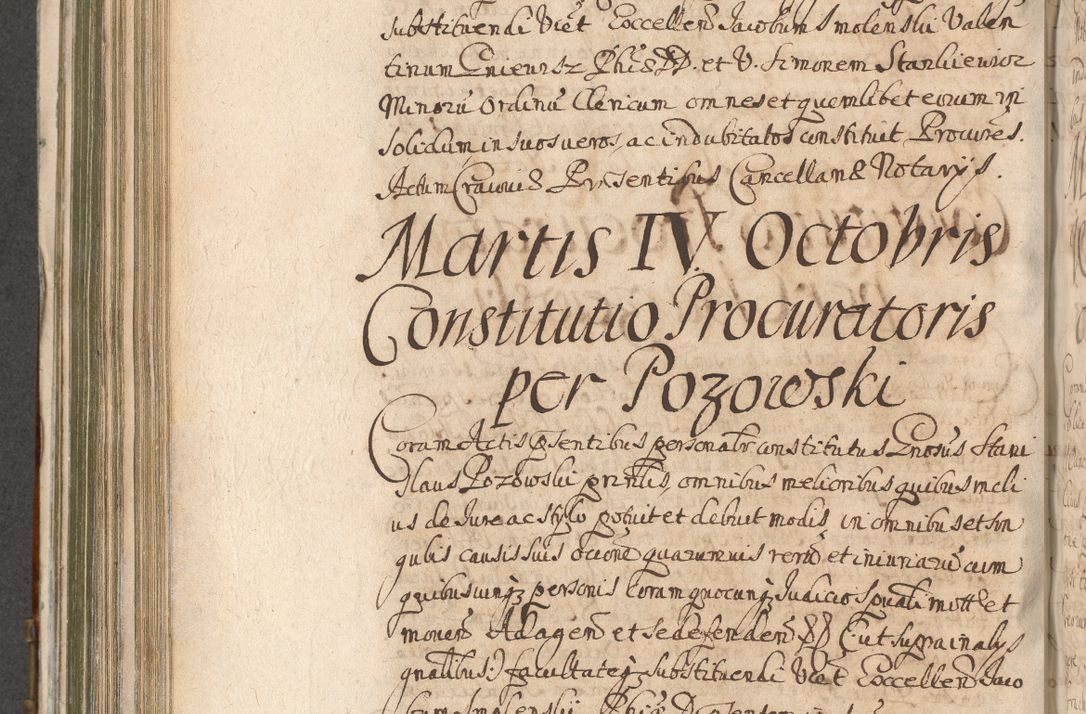 substituendi Vict Excellen Jacobum Smolenski Valen
tinum Gnieursz Phiæ DD. et V. Simonem Stankiewicz
Minorū Ordinū Clericum omnes et quemlibet eorum in
solidum, in suos veros, ac indubitatos constituit Procures.
Actum Cracoviæ Præsentibus Cancellariæ Notarijs.
Martis IV. Octobris
Constitutio Procuratoris
per Pozowski
Coram Actis pṣentibus personalr constitutus Gnosus Stani
slaus Pozowski prinlis, omnibus melioribus quibus meli
us de Jure ac stylo potuit et debuit modis in omnibus et sin
gulis causis suis ocione quarumvis rerū et iniuriarū cum
quibusvinqz personis Coram quocunqz Judicio Spuali mott et
moven Ad agen et se defenden (: ut supra in alys
qualibus:) facultateqz substituendi Vict Excellen Jaco
bum Smolenskij Phiæ D.